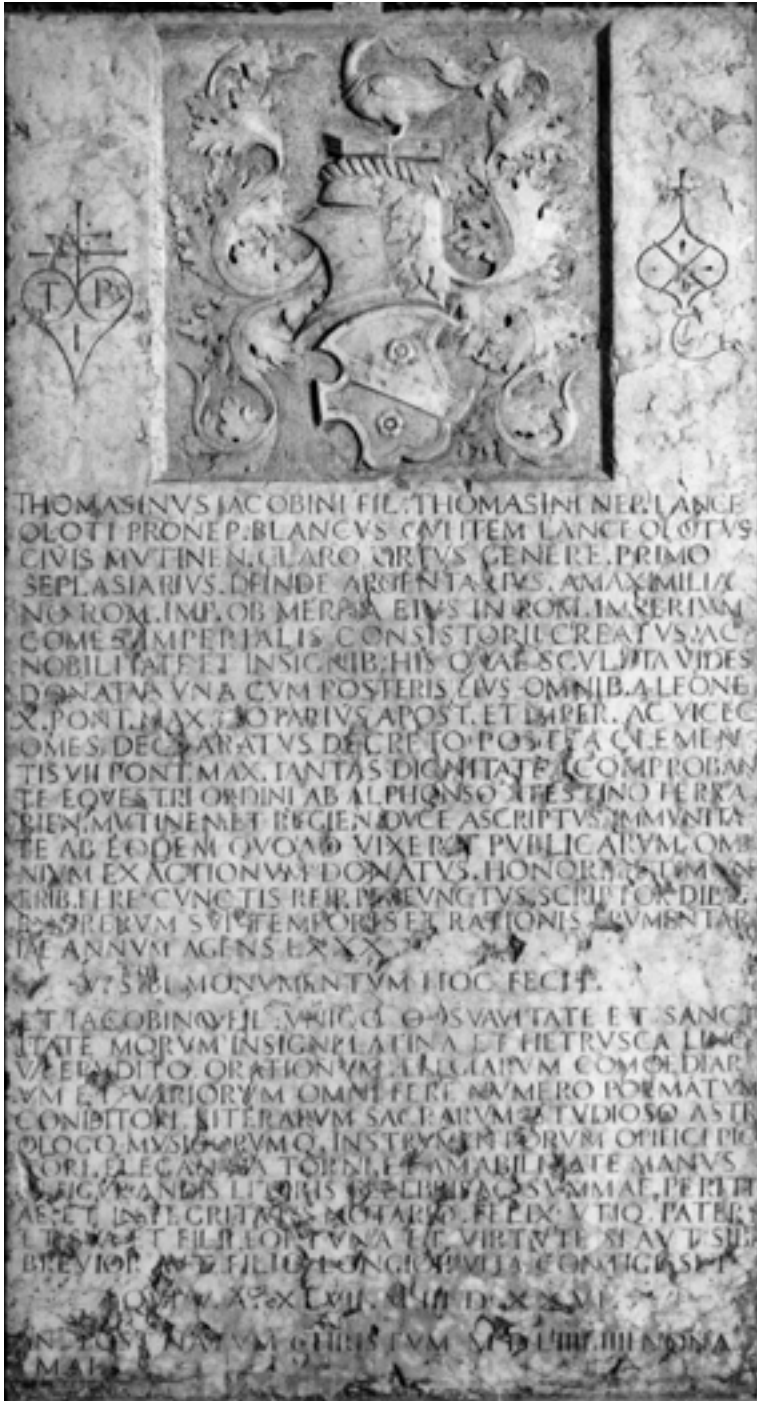 T P
I
THOMASINVS IACOBINI FIL. THOMASINI NEP. LANCE
OLOTI PRONEP. BLANCVS QVI ITEM LANCEOLOTVS
CIVIS MVTINEN. CLARO ORTVS GENERE. PRIMO
SEPLASIARIVS. DEINDE ARGENTARIVS. A MAXIMILIA
NO ROM. IMP. OB MERITA EIVS IN ROM. IMPERIVM
COMES IMPERIALIS CONSISTORII CREATVS. AC
NOBILITATE ET INSIGNIB. HIS QVAE SCVLPTA VIDES
DONATVS VNA CVM POSTERIS EIVS OMNIB. A LEONE
X. PONT. MAX. APOST. ET IMPER. AC VICEC
OMES DECLARATVS DECRETO POSTEA CLEMEN
TIS VII PONT. MAX. TANTAS DIGNITATES COMPROBAN
TE EQVESTRI ORDINI AB ALPHONSO ATESTINO FERRA
RIEN. MVTINEN. ET REGIEN. DVCE ASCRIPTVS. IMMVNITA
TE AB EODEM QVOAD VIXERIT PVBLICARVM OM
NIVM EXACTIONVM DONATVS. HONORIB. ET MVN
ERIB. FERE CVNCTIS REIP. SCRIPTOR
RERVM SVI TEMPORIS ET RATIONIS FRVMENTAR
IAE ANNVM AGENS LXXX
V. SIBI MONVMENTVM HOC FECIT.
ET IACOBINO FIL. VNICO SVAVITATE ET SANCT
ITATE MORVM INSIGNI LATINA ET HETRVSCA LING
VA ERVDITO. ORATIONVM. ELEGIARVM COMOEDIAR
VM ET VARIORVM OMNI FERE NVMERO POEMATVM
CONDITORI. LITERARVM SACRARVM STVDIOSO ASTR
OLOGO MVSICORVMQ. INSTRVMENTORVM OPIFICI PIC
TORI. ELEGANTIA TORNI. ET AMABILITATE MANVS
FIGVRANDIS LITERIS AC SVMMAE PERITI
AE ET INTEGRITATIS NOTARIO. FELIX VTIQ. PATER
ET SVA ET FILII FORTVNA ET VIRTVTE SI AVT SIBI
BREVIOR AVT FILIO LONGIOR VITA CONTIGISSET
XLVII D. XXVI
POST NATVM CHRISTVM NONA
MAI